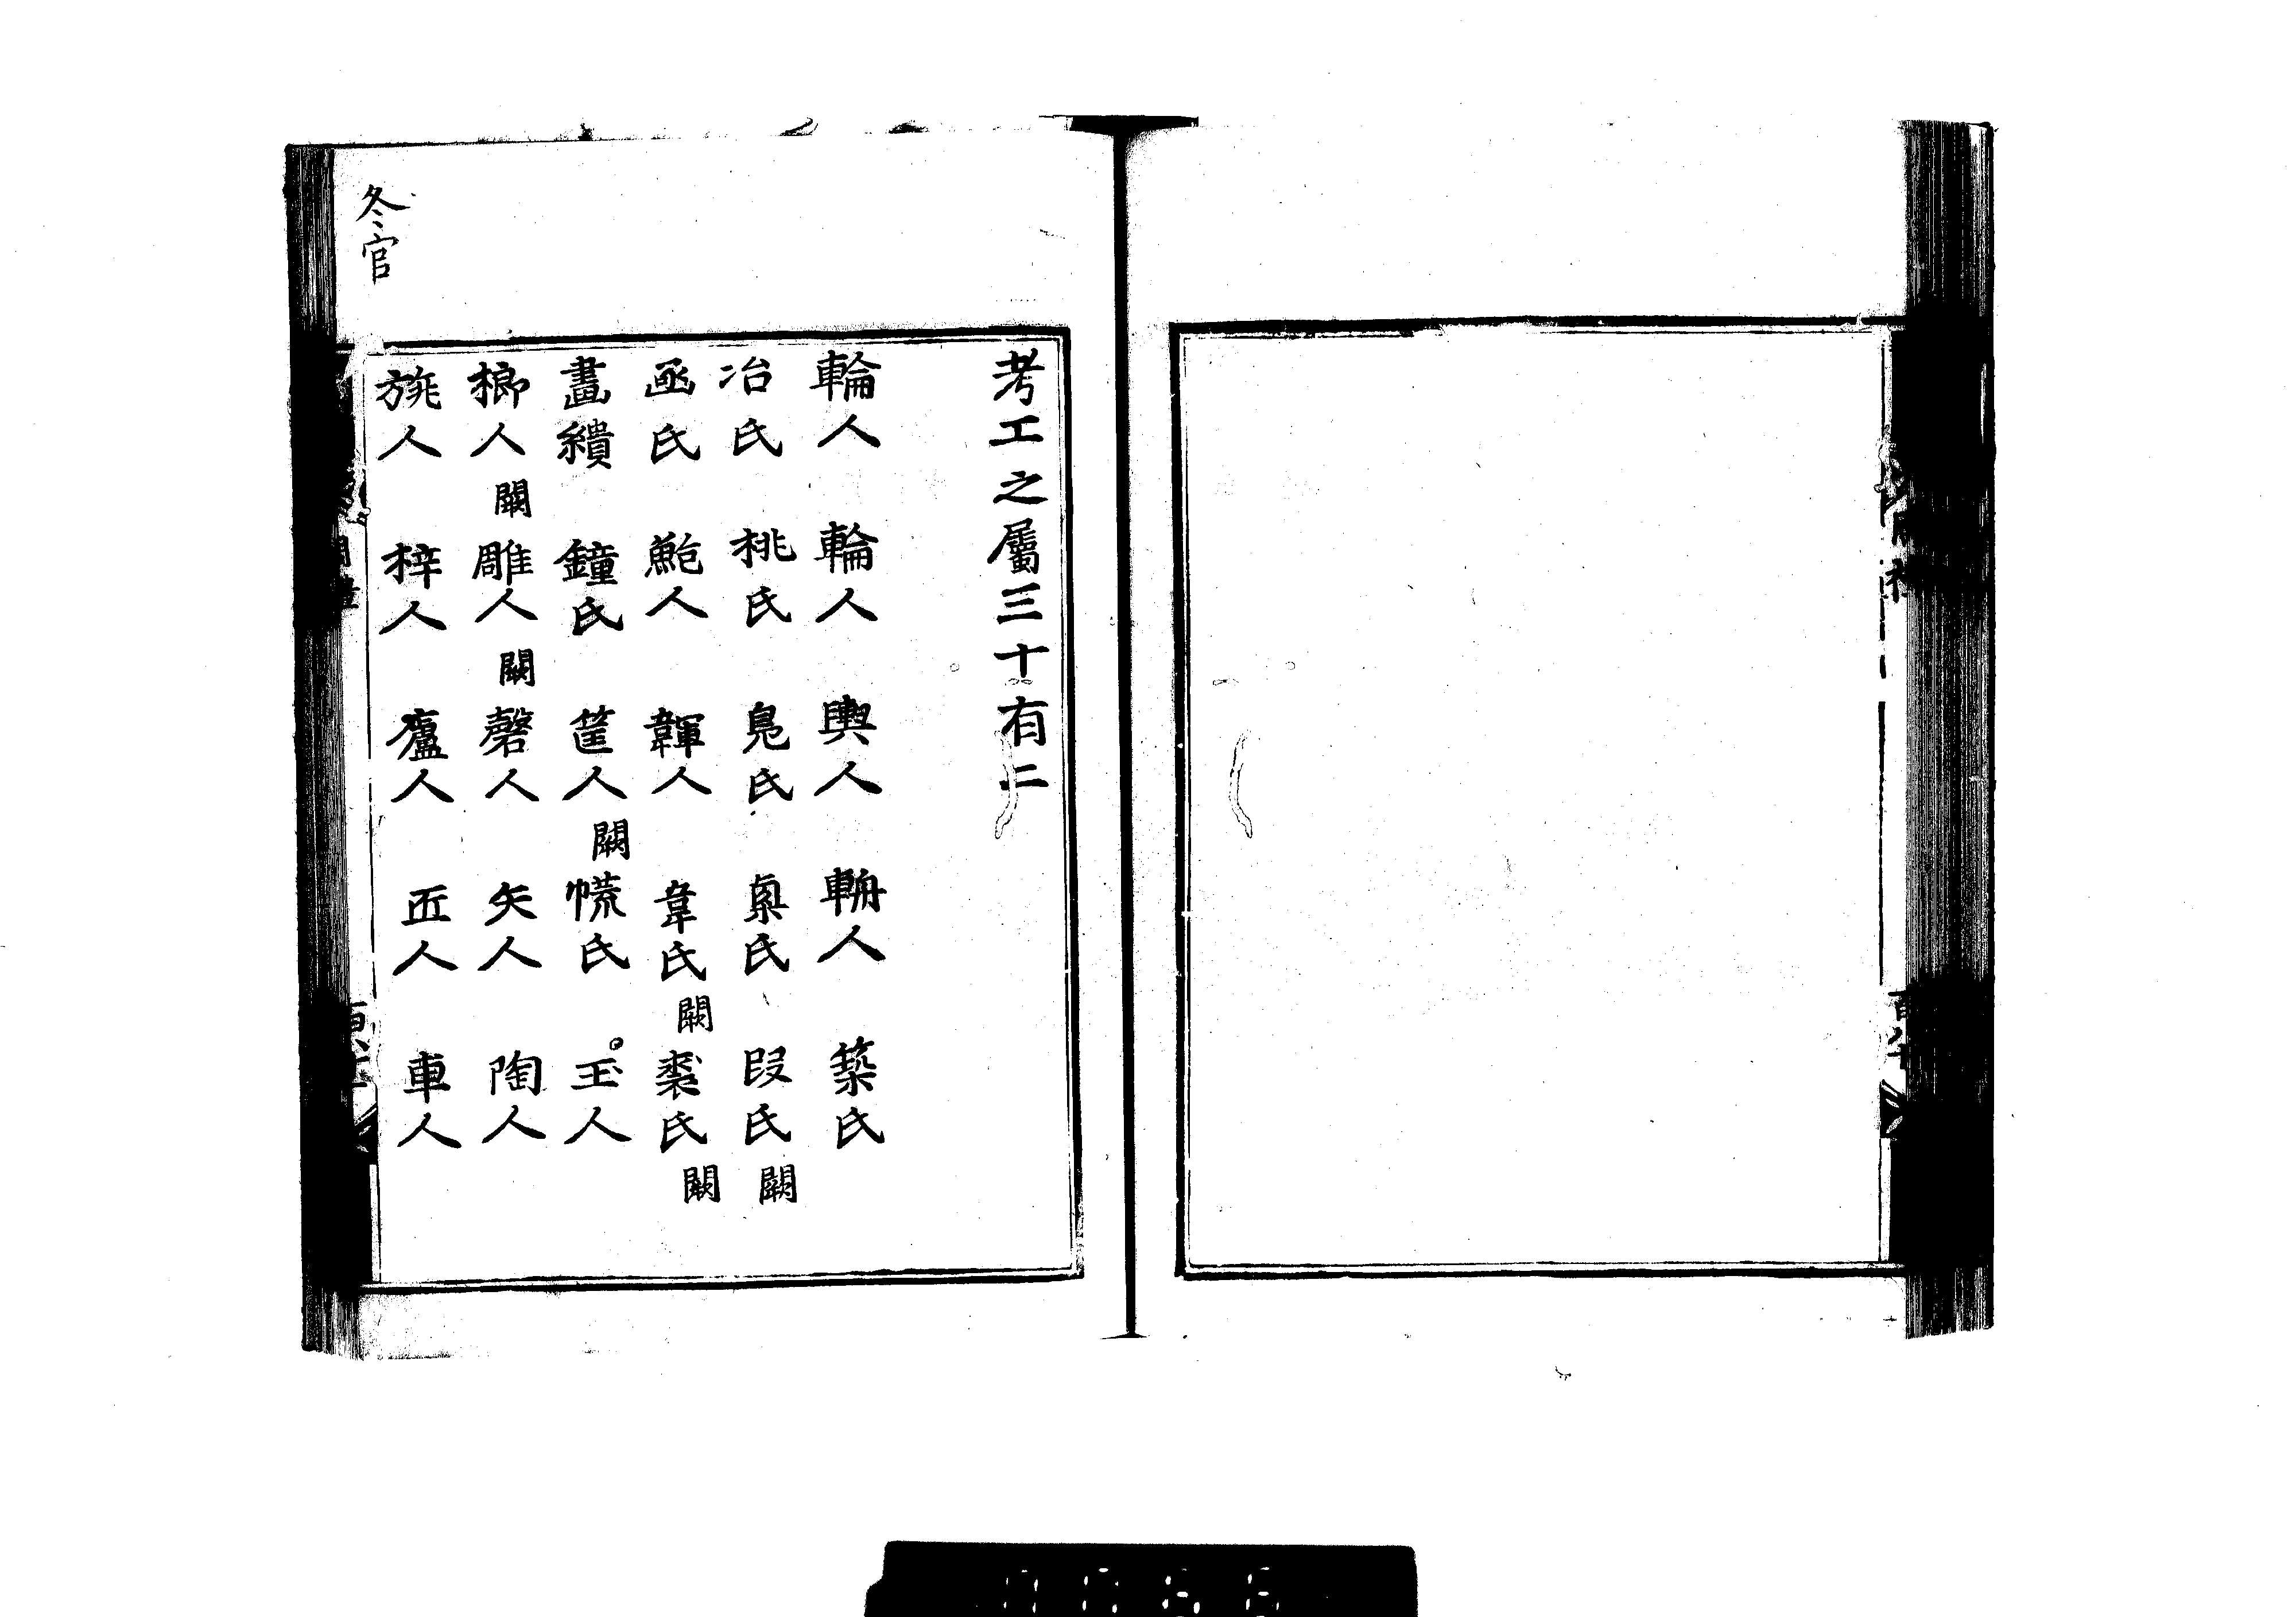 考工之屬三十有二
輪人 輪人 輿人 輈人 築氏
冶氏 桃氏 鳧氏 㮚氏 段氏闕
函氏 鮑人 韗人 韋氏闕 裘氏闕
畫繢 鐘氏 筐人闕 㡛氏 玉人
楖人闕 雕人闕 磬人 矢人 陶人
旊人 梓人 廬人 匠人 車人
冬官